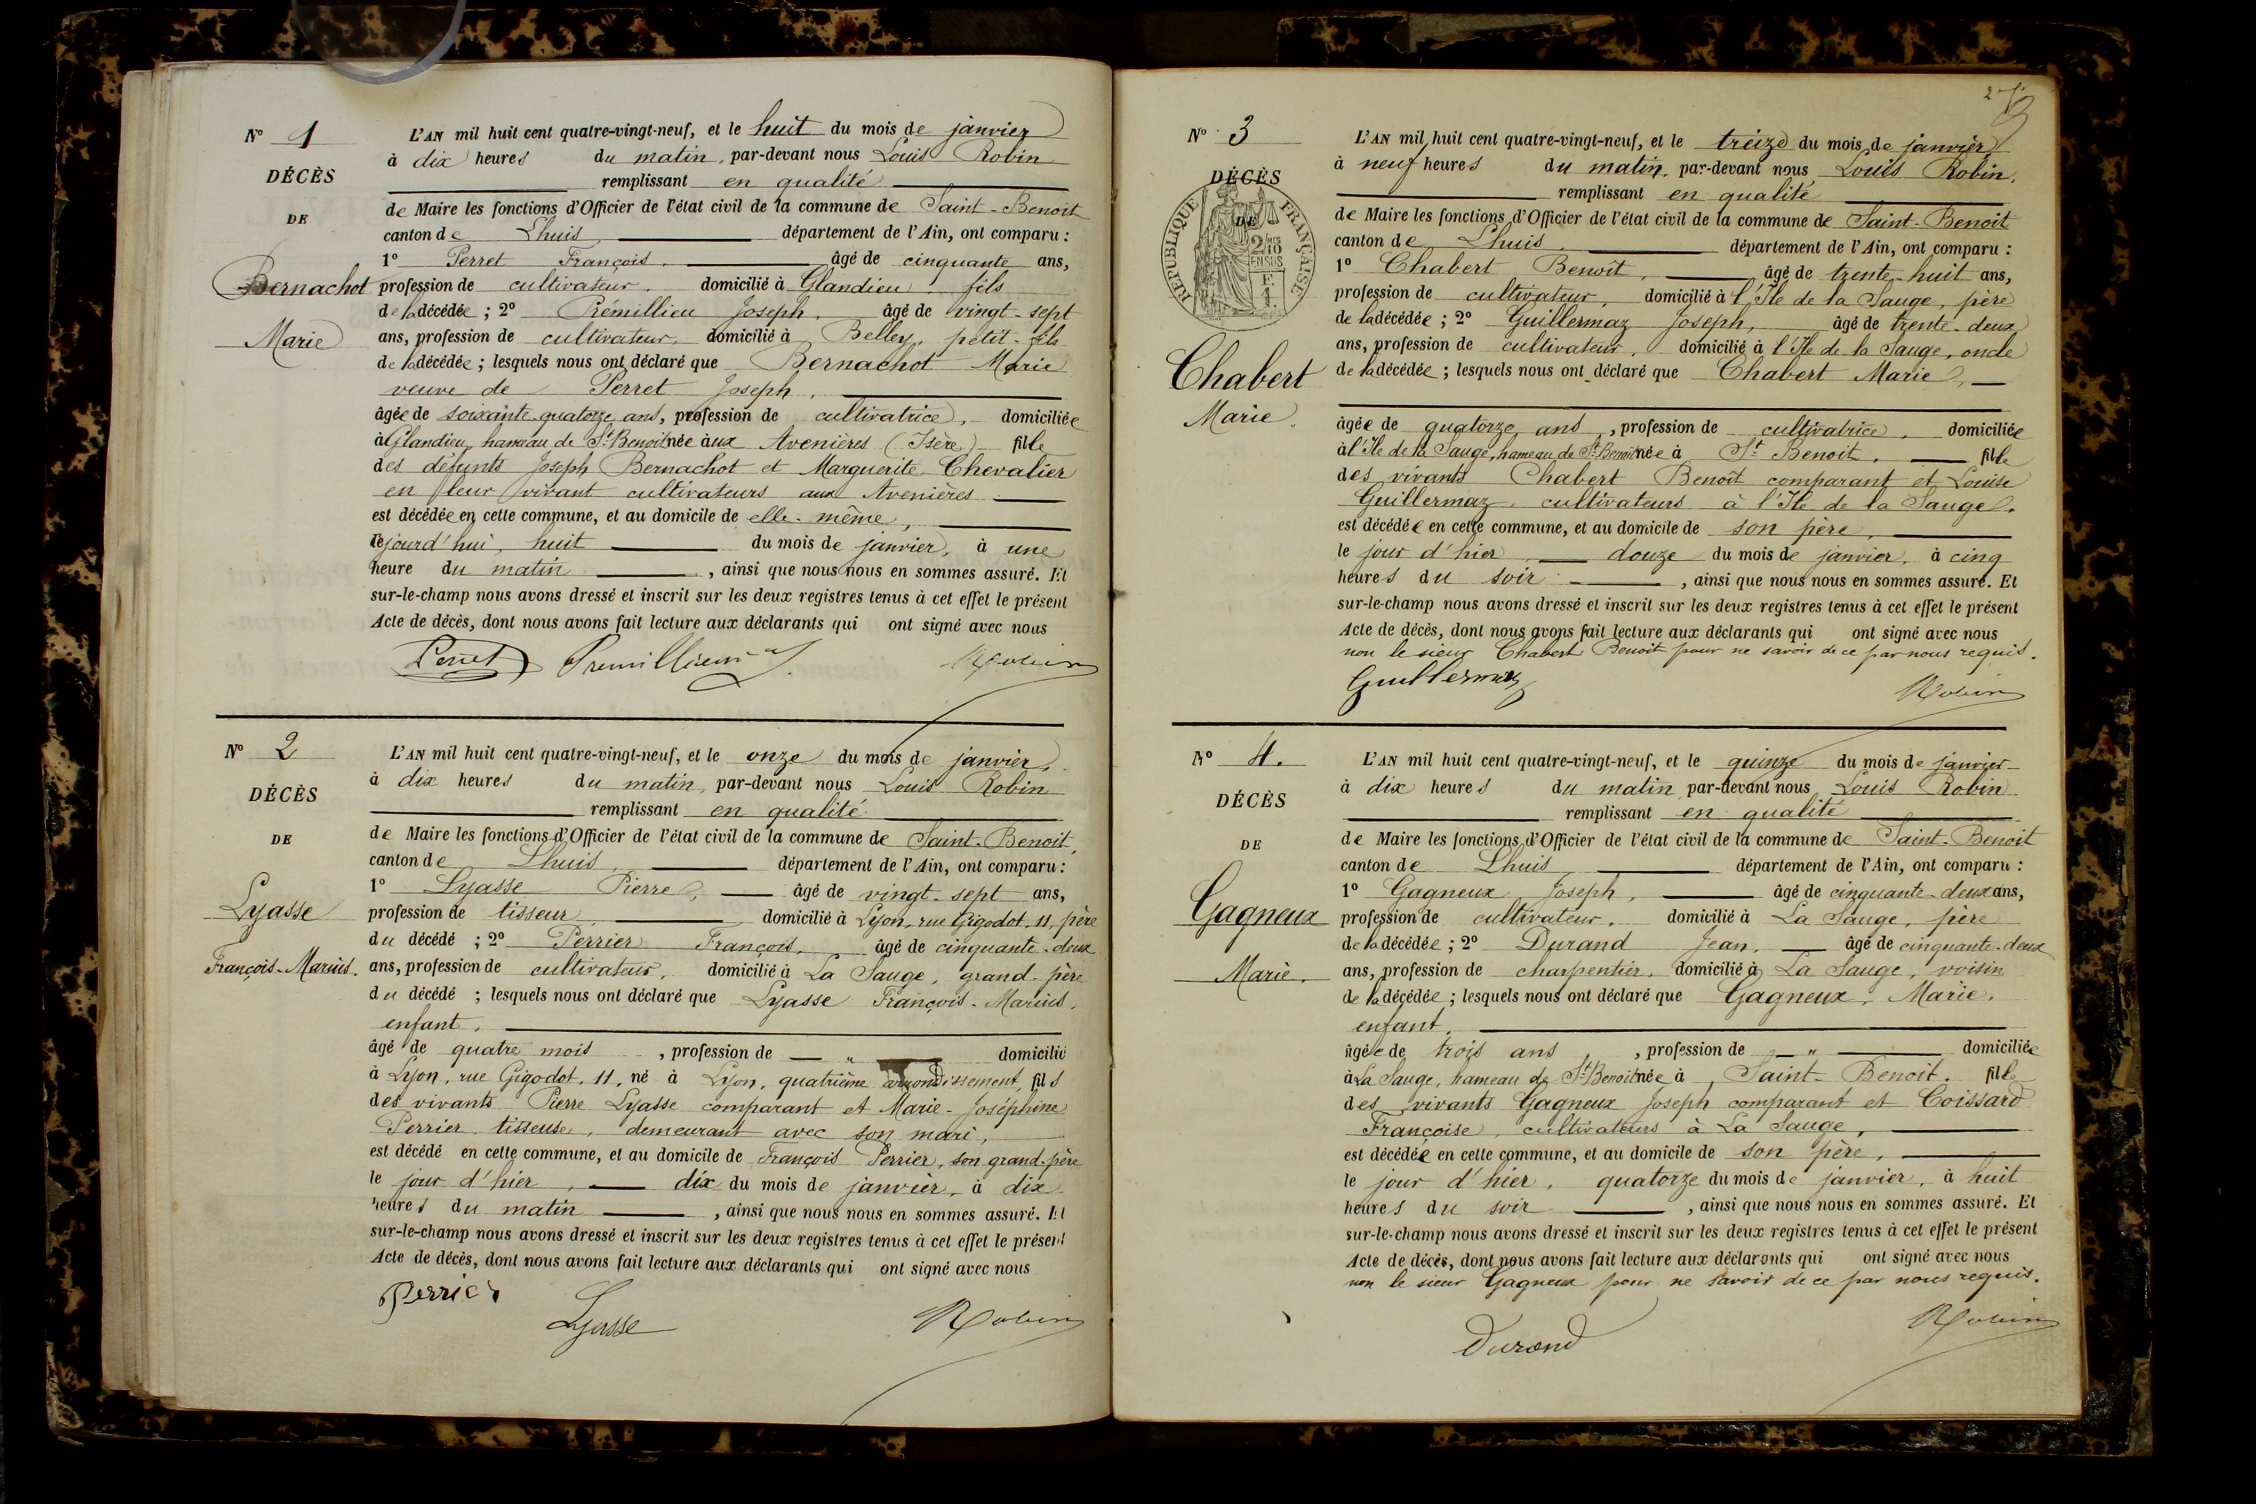 N° 1
DÉCÈS
DE
Bernachot
Marie
L'AN mil huit cent quatre-vingt-neuf, et le huit du mois de janvier
à dix heures du matin, par-devant nous Louis Robin
remplissant en qualité
de Maire les fonctions d'Officier de l'état civil de la commune de Saint-Benoit
canton de Lhuis département de l'Ain, ont comparu :
1° Perret François, âgé de cinquante ans,
profession de cultivateur, domicilié à Glandieu, fils
de la décédée ; 2° Prémillieu Joseph, âgé de vingt-sept
ans, profession de cultivateur, domicilié à Belley, petit-fils
de la décédée ; lesquels nous ont déclaré que Bernachot Marie
veuve de Perret Joseph,
âgée de soixante quatorze ans, profession de cultivatrice, domiciliée
à Glandieu, hameau de St Benoit née aux Avenières (Isère) fille
des défunts Joseph Bernachot et Marguerite Chevalier
en leur vivant cultivateurs aux Avenières
est décédée en cette commune, et au domicile de elle-même,
cejourd'hui, huit du mois de janvier, à une
heure du matin, ainsi que nous nous en sommes assuré. Et
sur-le-champ nous avons dressé et inscrit sur les deux registres tenus à cet effet le présent
Acte de décès, dont nous avons fait lecture aux déclarants qui ont signé avec nous
Perret Premillieu J. Robin
N° 2
DÉCÈS
DE
Lyasse
François-Marius.
L'AN mil huit cent quatre-vingt-neuf, et le onze du mois de janvier,
à dix heures du matin, par-devant nous Louis Robin
remplissant en qualité
de Maire les fonctions d'Officier de l'état civil de la commune de Saint-Benoit,
canton de Lhuis, département de l'Ain, ont comparu :
1° Lyasse Pierre, âgé de vingt-sept ans,
profession de tisseur, domicilié à Lyon, rue Gigodot, 11, père
du décédé ; 2° Perrier François, âgé de cinquante-deux
ans, profession de cultivateur, domicilié à La Sauge, grand-père
du décédé ; lesquels nous ont déclaré que Lyasse François-Marius,
enfant,
âgé de quatre mois, profession de — " — domicilié
à Lyon, rue Gigodot, 11, né à Lyon, quatrième arrondissement, fils
des vivants Pierre Lyasse comparant et Marie-Joséphine
Perrier tisseuse, demeurant avec son mari,
est décédé en cette commune, et au domicile de François Perrier, son grand-père
le jour d'hier, dix du mois de janvier, à dix
heures du matin, ainsi que nous nous en sommes assuré. Et
sur-le-champ nous avons dressé et inscrit sur les deux registres tenus à cet effet le présent
Acte de décès, dont nous avons fait lecture aux déclarants qui ont signé avec nous
Perrier
Lyasse Robin
N° 3
DÉCÈS
DE
RÉPUBLIQUE FRANÇAISE
Chabert
Marie.
L'AN mil huit cent quatre-vingt-neuf, et le treize du mois de janvier,
à neuf heures du matin, par-devant nous Louis Robin,
remplissant en qualité
de Maire les fonctions d'Officier de l'état civil de la commune de Saint-Benoit
canton de Lhuis, département de l'Ain, ont comparu :
1° Chabert Benoit, âgé de trente-huit ans,
profession de cultivateur, domicilié à l'Ile de la Sauge, père
de la décédée ; 2° Guillermaz Joseph, âgé de trente-deux
ans, profession de cultivateur, domicilié à l'Ile de la Sauge, oncle
de la décédée ; lesquels nous ont déclaré que Chabert Marie,
âgée de quatorze ans, profession de cultivatrice, domiciliée
à l'Ile de la Sauge, hameau de St Benoit née à St Benoit, fille
des vivants Chabert Benoit comparant et Louise
Guillermaz, cultivateurs à l'Ile de la Sauge,
est décédée en cette commune, et au domicile de son père,
le jour d'hier, douze du mois de janvier, à cinq
heures du soir, ainsi que nous nous en sommes assuré. Et
sur-le-champ nous avons dressé et inscrit sur les deux registres tenus à cet effet le présent
Acte de décès, dont nous avons fait lecture aux déclarants qui ont signé avec nous
non le sieur Chabert Benoit pour ne savoir de ce par nous requis.
Guillermaz
Robin
N° 4.
DÉCÈS
DE
Gagneux
Marie.
L'AN mil huit cent quatre-vingt-neuf, et le quinze du mois de janvier
à dix heures du matin par-devant nous Louis Robin
remplissant en qualité
de Maire les fonctions d'Officier de l'état civil de la commune de Saint-Benoit
canton de Lhuis département de l'Ain, ont comparu :
1° Gagneux Joseph, âgé de cinquante-deux ans,
profession de cultivateur, domicilié à La Sauge, père
de la décédée ; 2° Durand Jean, âgé de cinquante-deux
ans, profession de charpentier, domicilié à La Sauge, voisin
de la décédée ; lesquels nous ont déclaré que Gagneux, Marie,
enfant,
âgée de trois ans, profession de — " — domiciliée
à La Sauge, hameau de St Benoit née à Saint-Benoit, fille
des vivants Gagneux Joseph comparant et Coissard
Françoise, cultivateurs à La Sauge,
est décédée en cette commune, et au domicile de son père,
le jour d'hier, quatorze du mois de janvier, à huit
heures du soir, ainsi que nous nous en sommes assuré. Et
sur-le-champ nous avons dressé et inscrit sur les deux registres tenus à cet effet le présent
Acte de décès, dont nous avons fait lecture aux déclarants qui ont signé avec nous
non le sieur Gagneux pour ne savoir de ce par nous requis.
Robin
Durand